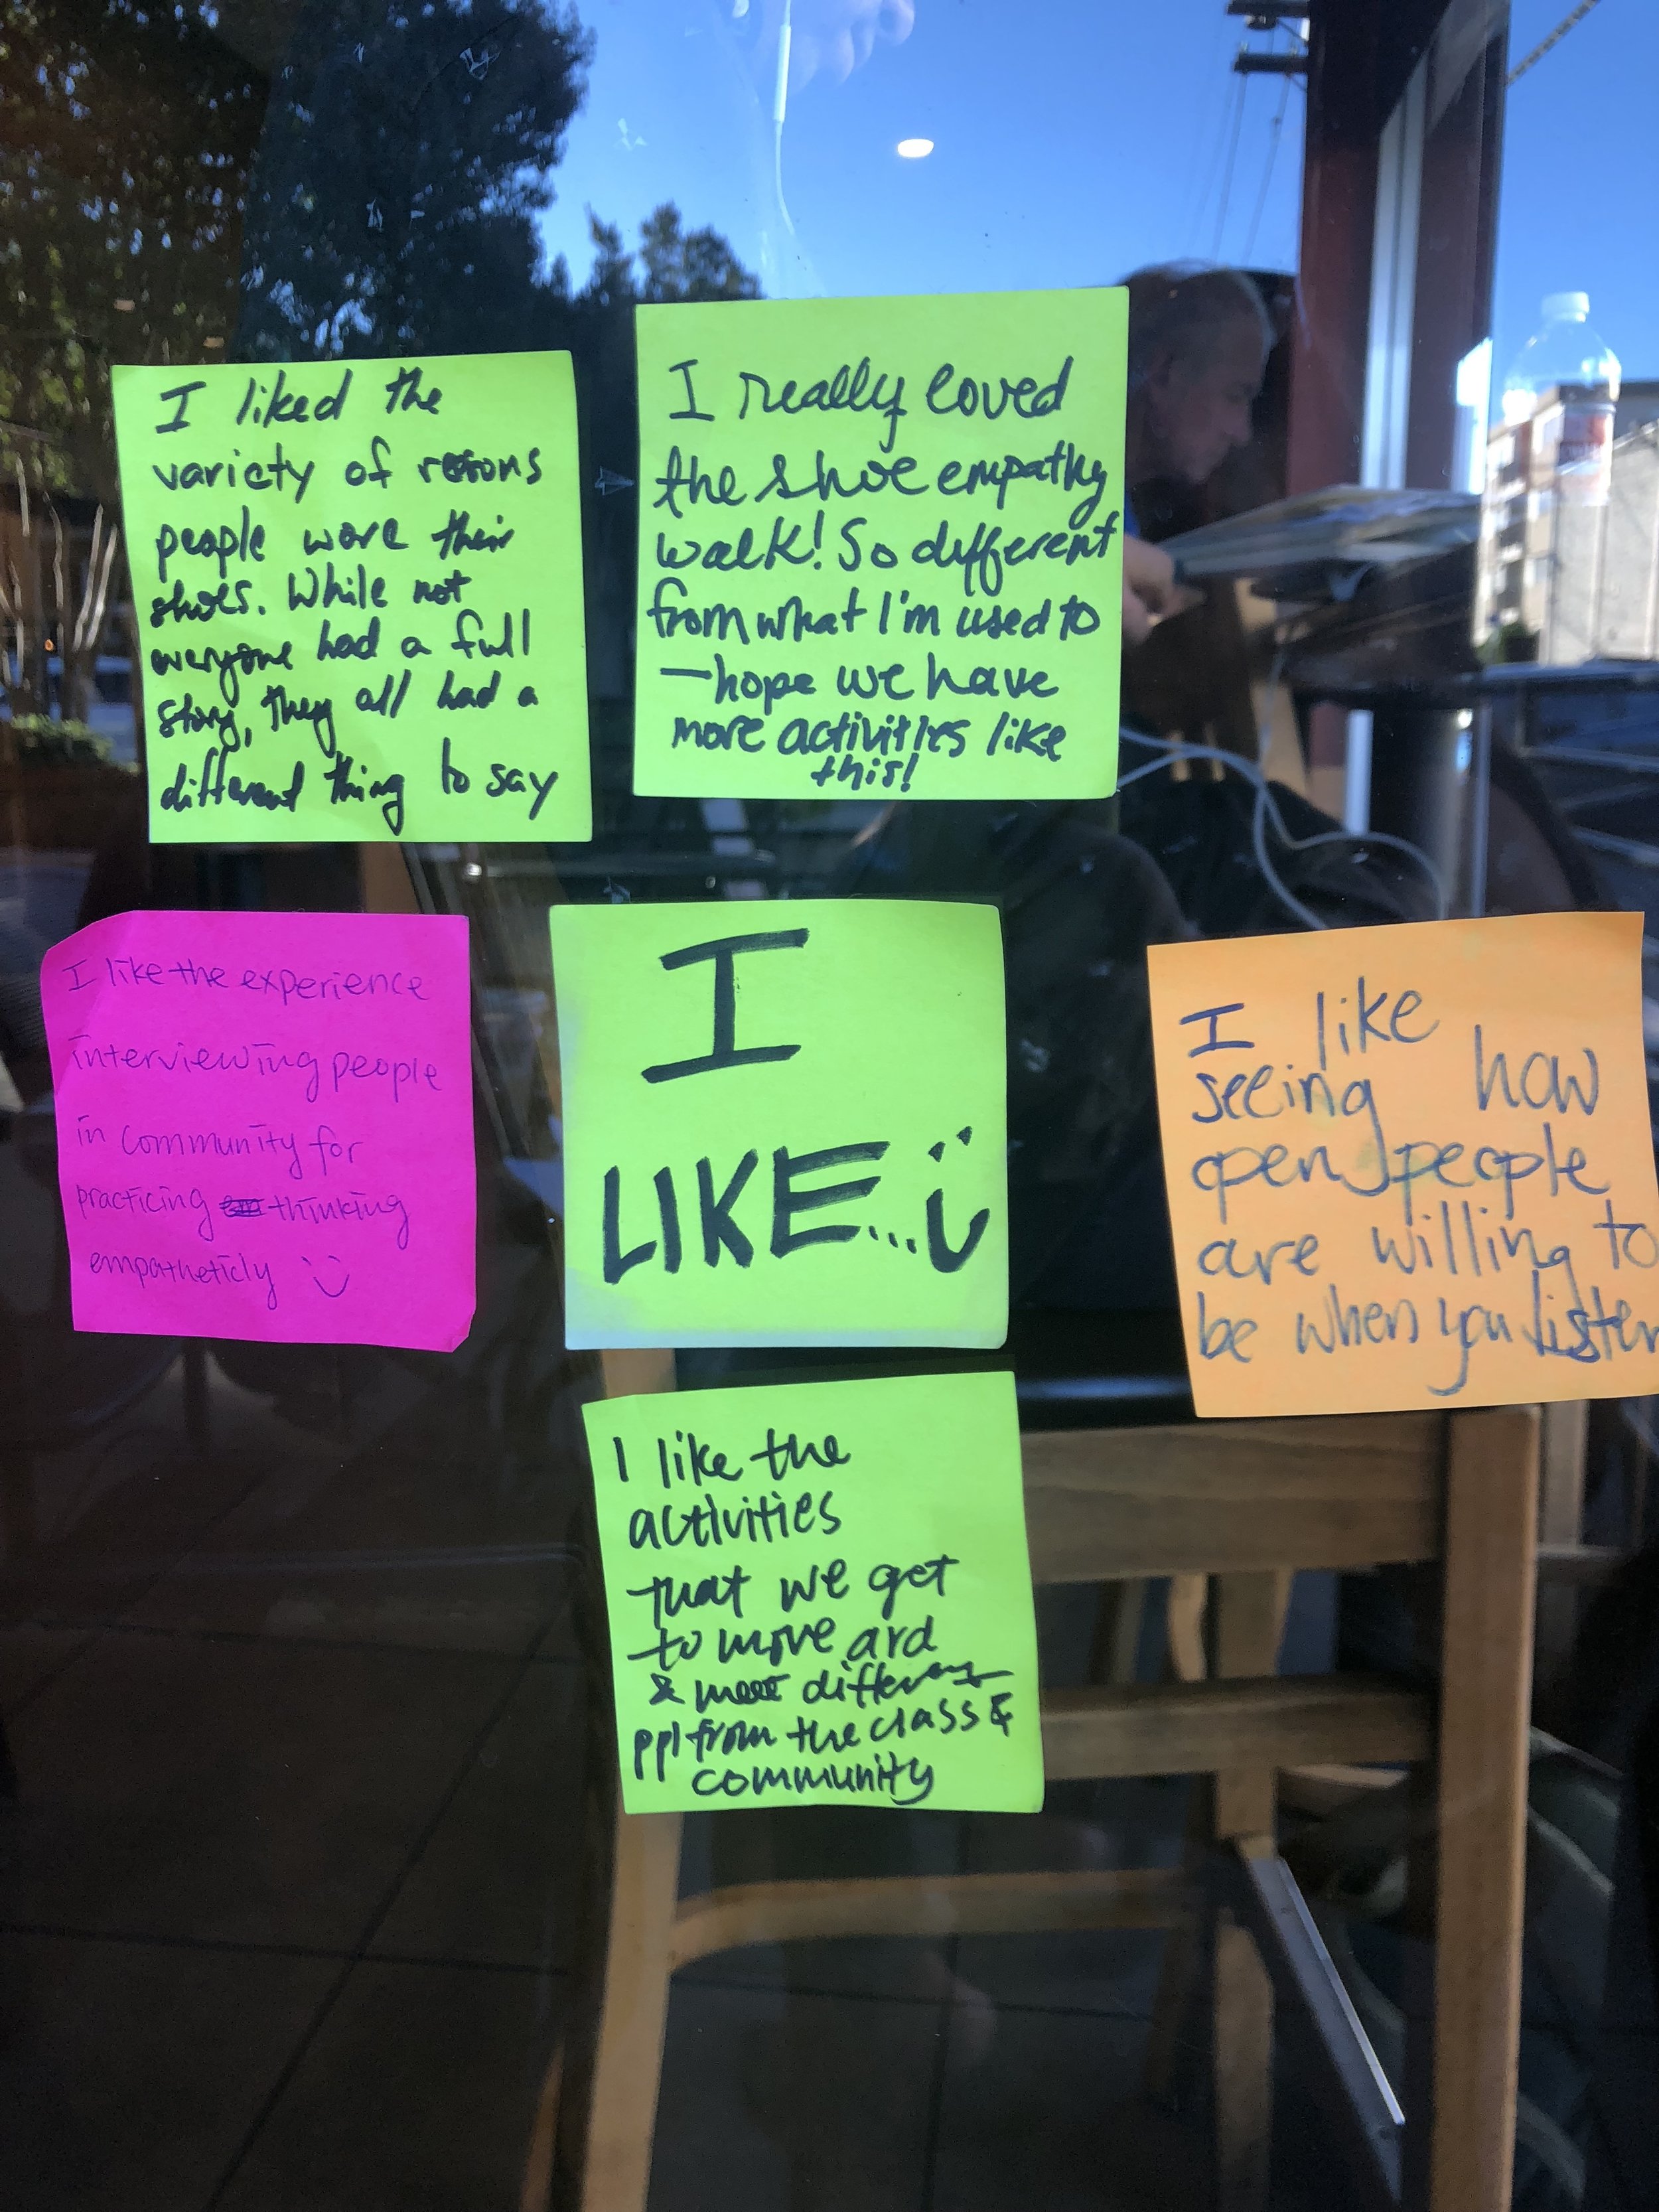 I liked the
variety of resons
people wore their
shoes. While not
everyone had a full
story, they all had a
different thing to say
I really loved
the shoe empathy
walk! So different
from what I'm used to
—hope we have
more activities like
this!
I like the experience
interviewing people
in community for
practicing thinking
empatheticly
I
LIKE...
I like
seeing how
open people
are willing to
be when you listen
I like the
activities
that we get
to move ard
& meet different
ppl from the class &
community